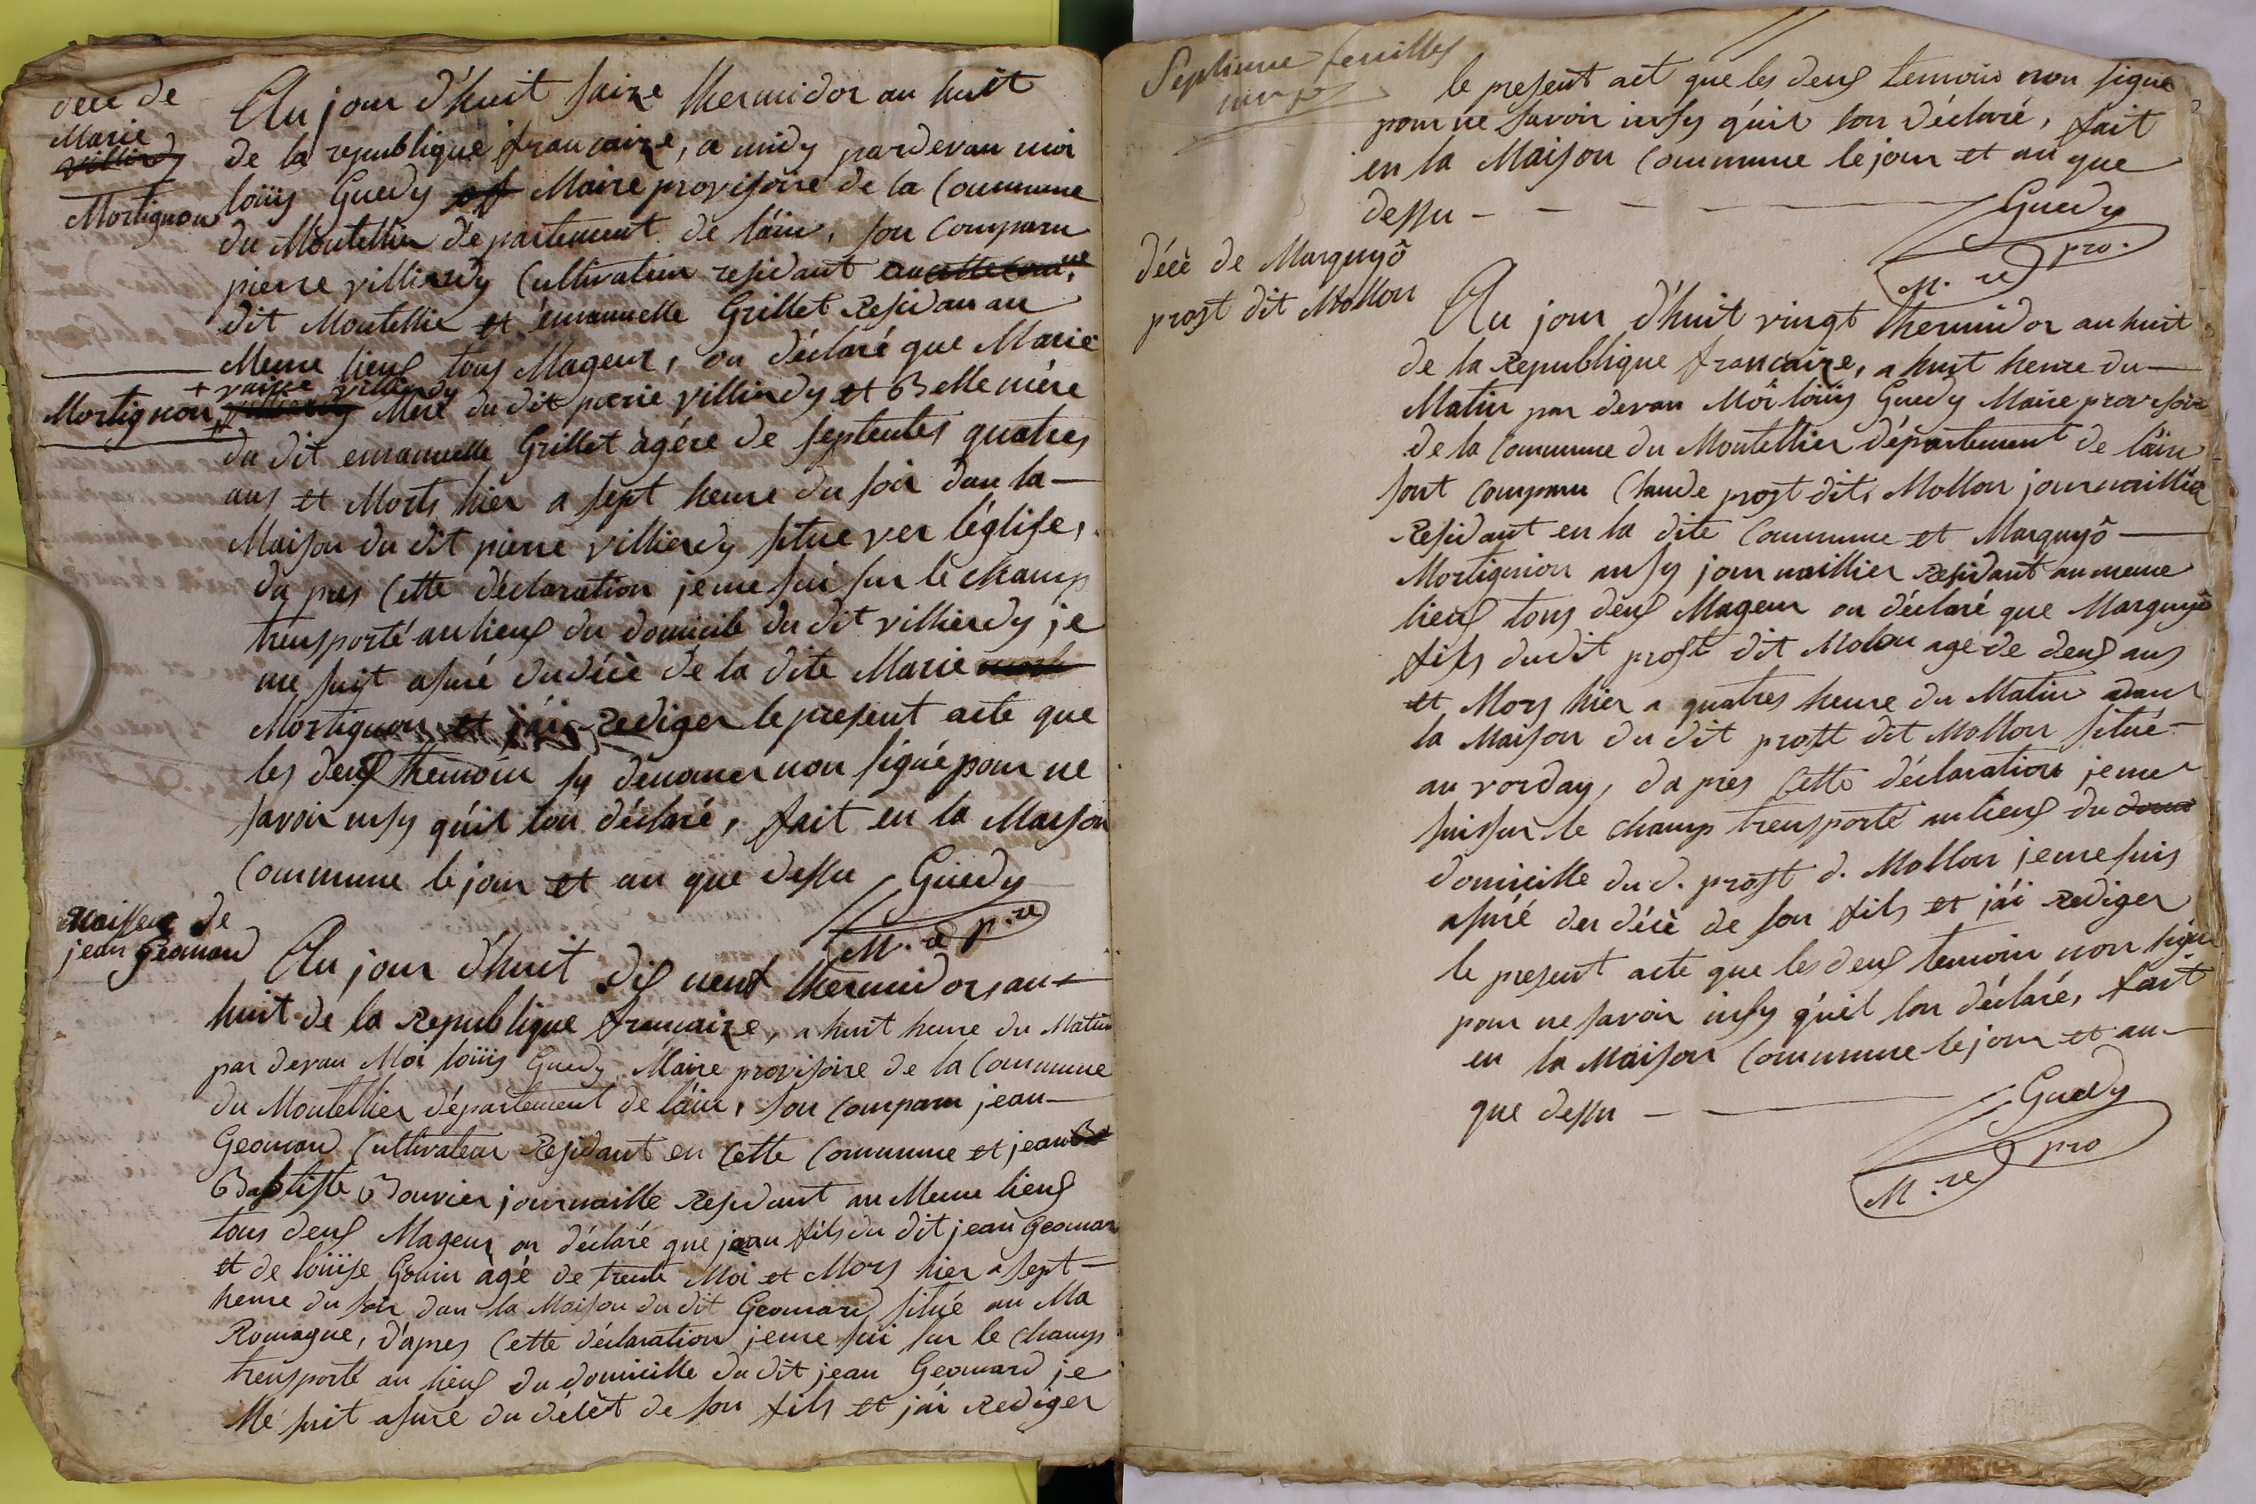 décé de
Marie
Mortignon
Au jour d'huit saize thermidor an huit
de la republique francaize, a midy pardevan moi
loüis Guedy Maire provisoire de la Commune
du Montellier département de láin, son Comparu
pierre villierdy Cultivateur residant
dit Montellie et émanuelle Grillet Residan au
Meme lieux tous Mageur, on déclaré que Marie
Mortignon + vaive villierdy
Mere du dit pierie villierdy et Belle mére
du dit emanuelle Grillet agére de septentes quatres
ans et Morts hier a sept heure du soir dan la
Maison du dit pierre villierdy situe ver léglise,
da pres Cette déclaration je me sui sur le champ
trensporté au lieux du domicile du dit villierdy je
me suit asuré du décè de la dite Marie
Mortignon et j'ai Rediger le present acte que
les deux themoin sy dénomer non signé pour ne
savoir insy qúil lon déclaré, fait en la Maison
Commune le jour et an que dessu Guedy
M.re p.re
Naissence de
jean Geomard
Au jour d'huit dix neuf thermidor, an
huit de la Republique francaize, a huit heure du Matin
par devan Moi loüis Guedy Maire provisoire de la Commune
du Montellier département de láin, son Comparu jean
Geomard Cultivateur Residant en Cette Commune et jean
Baptiste Bouvier journaille Residant au Meme lieux
tous deux Mageur on déclaré que jean fils du dit jean Geomard
et de loüise Gonin àgé de trente Moi et Mors hier a sept
heure du soir dan la Maison du dit Geomard situé au Ma
Romague, dápres Cette déclaration je me sui sur le champs
trensporté au lieux du domicille du dit jean Geomard je
Me suit asuré du décèt de son fils et jái Rediger
Septieme feuilles
le present act que les deux temoin non signe
pour ne savoir insy qúil lon déclaré, fait
en la Maison Commune le jour et an que
dessu - - - - Guedy
M.re pro.
décè de Marguyô
prost dit Mollon
Au jour d'huit vingt thermidor an huit
de la Republique francaize, a huit heure du
Matin par devan Moi loüis Guedy Maire provisoir
de la Commune du Montellier département de láin
sont Comparu Claude prost dit Mollon journaillié
Residant en la dite Commune et Marguyô
Mortignion ausy journaillier Residant au meme
lieux tous deux Mageur on déclaré que Marguyô
fils du dit prost dit Molon age de deux ans
et Mors hier a quatres heure du Matin dans
la Maison du dit prost dit Mollon situé
au vorday, da pres Cette déclaration je me
suis sur le champ trensporté au lieux du
domicille du d. prost d. Mollon je me suis
asuré der décè de son fils et jái Rediger
le present acte que les deux temoin non signe
pour ne savoir insy qúil lon déclaré, fait
en la Maison Commune le jour et an
que dessu - Guedy
M.re pro